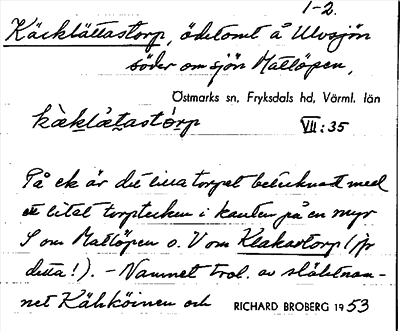 1-2.
Käcklåttastorp, ödetomt å Ulvsjön
söder om sjön Mattöpen,
Östmarks sn, Fryksdals hd, Värml. län
kàklåtastórp VII:35
På ek är det lilla torpet betecknat med
ett litet torptecken i kanten på en myr
S om Mattöpen o. V om Klakastorp (jfr
detta!). - Namnet trol. av släktnam-
net Kähköinen och RICHARD BROBERG 1953